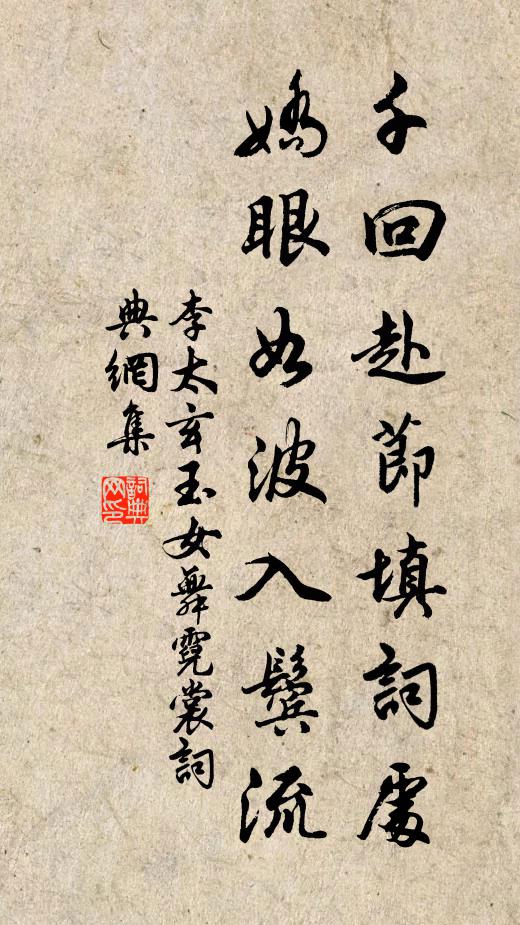 千回赴節填詞處
嬌眼如波入鬢流
李太玄玉女舞霓裳詞
典網集
詞典網印